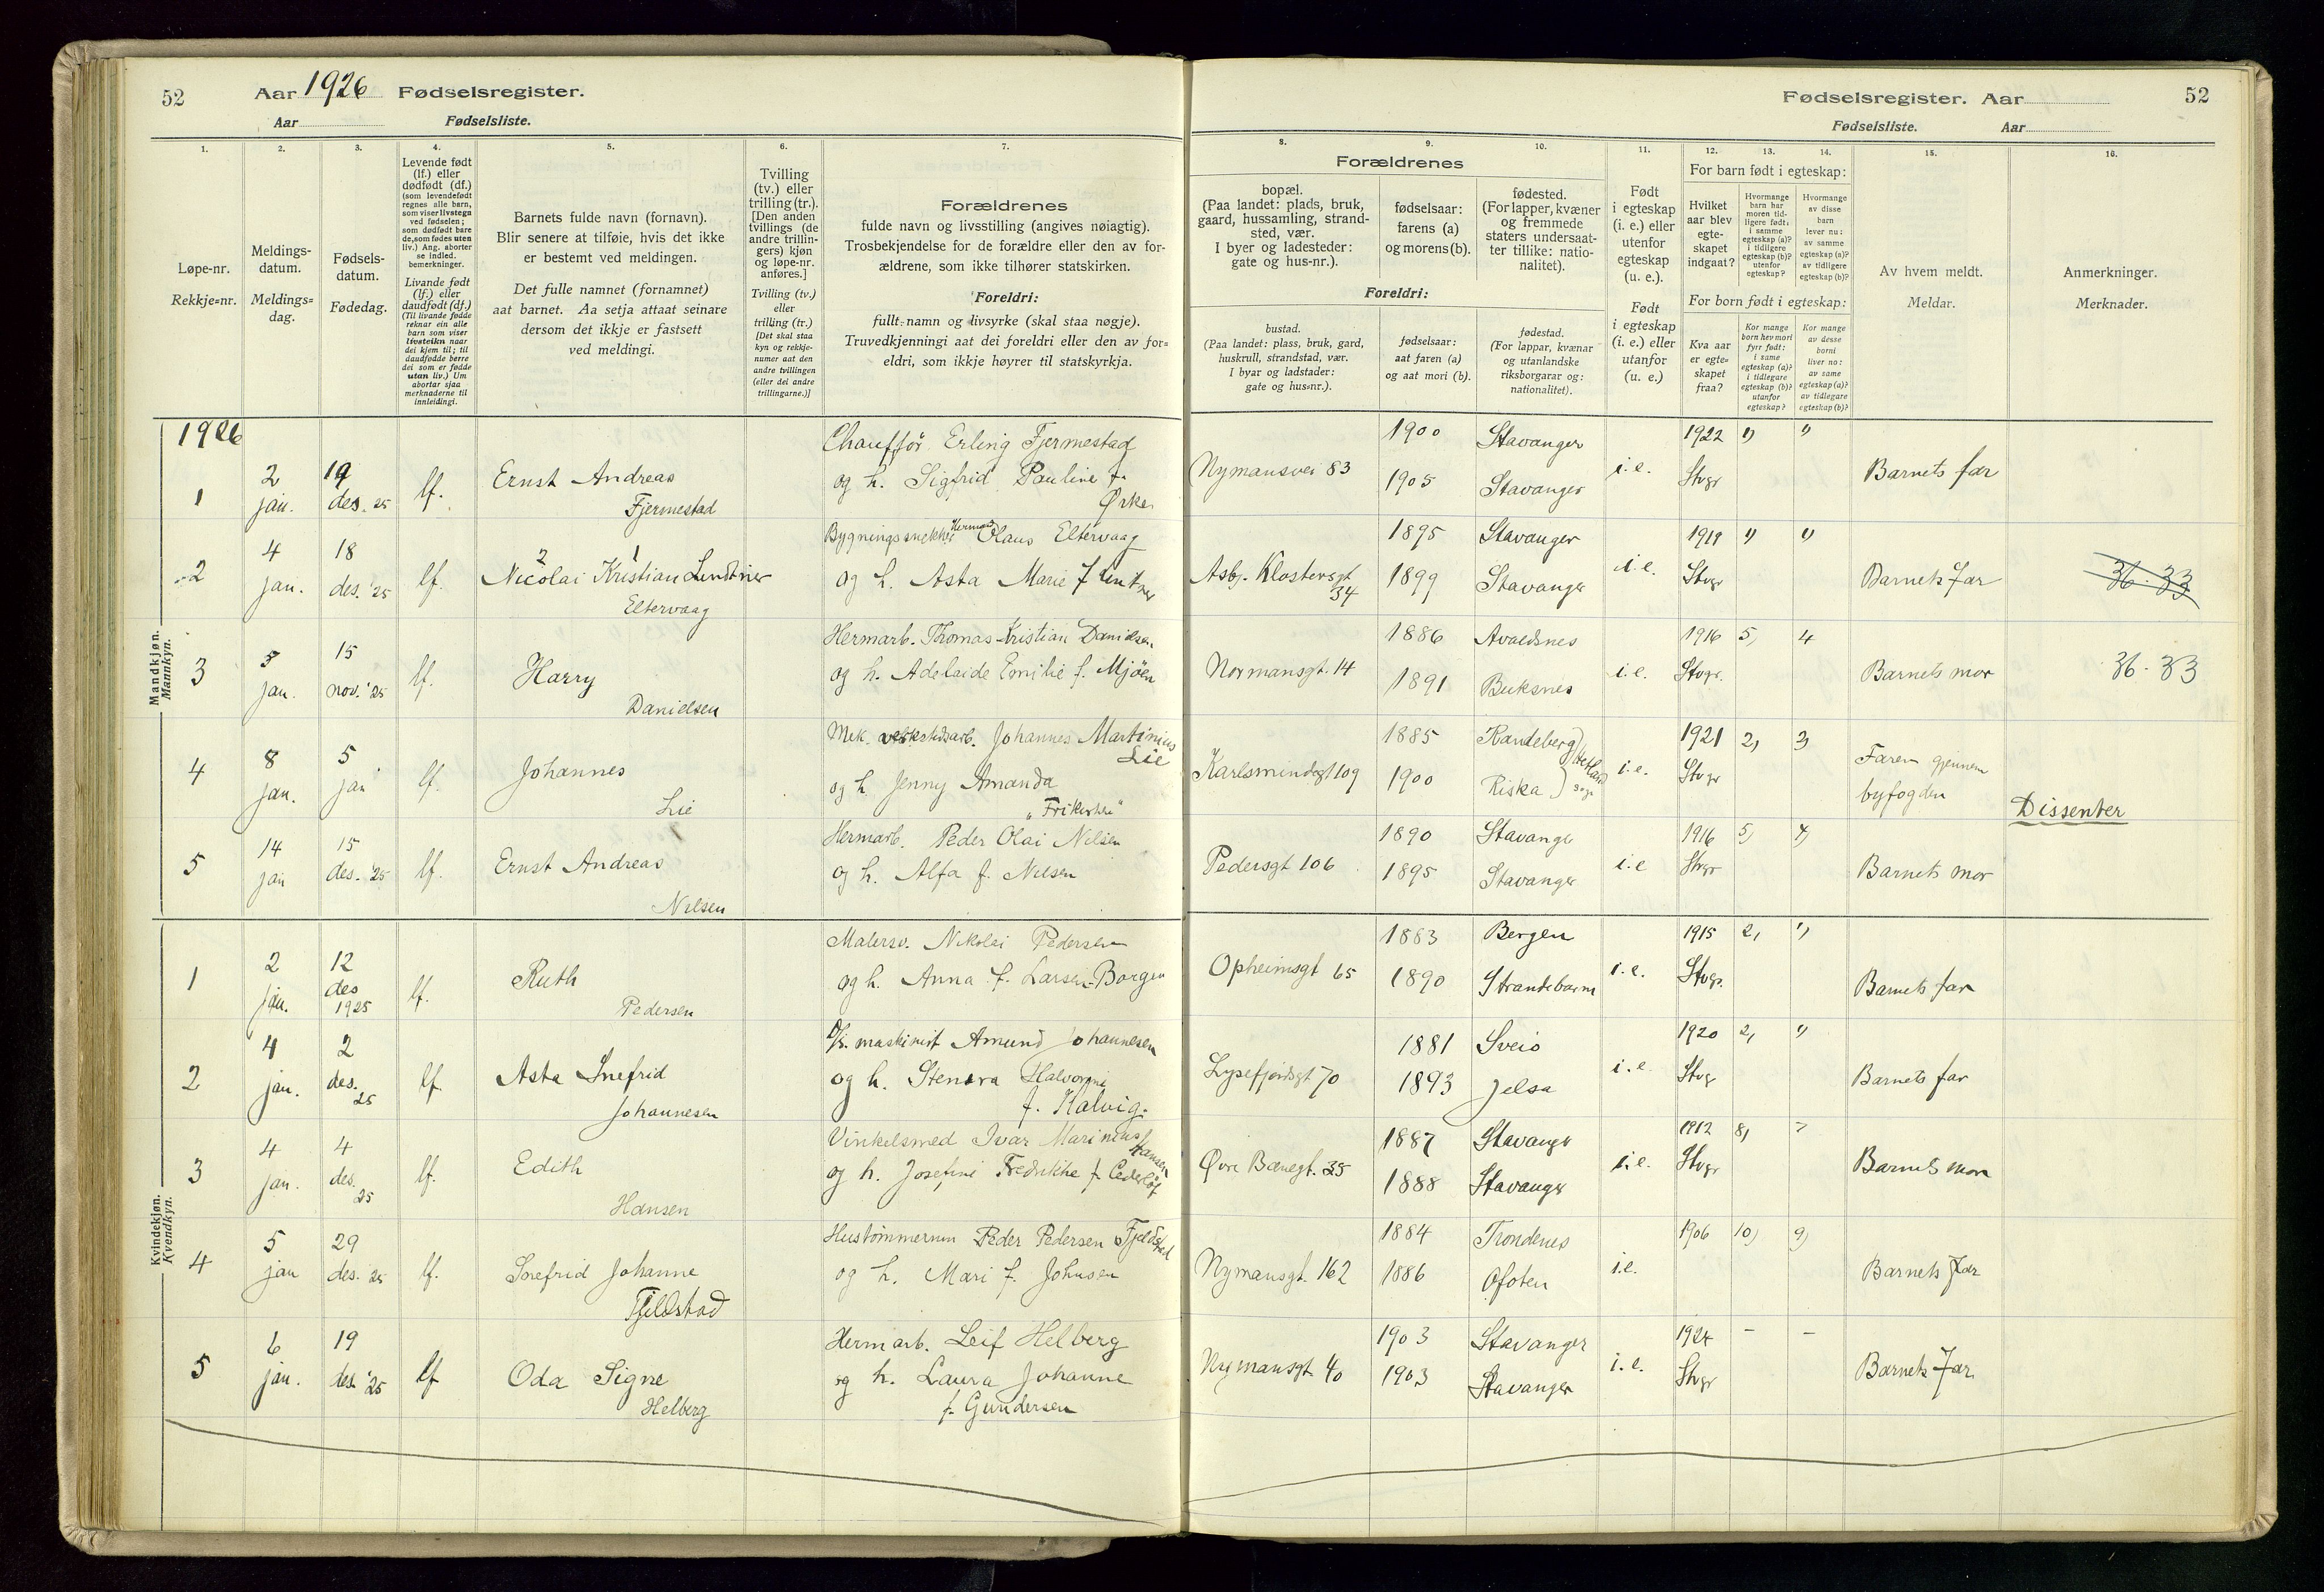 52
Aar 1926 Fødselsregister.
Aar Fødselsliste.
1.
2.
3.
4.
5.
6.
7.
Løpe-nr.
Rekkje=nr.
Meldings-
datum.
Meldings=
dag.
Fødsels-
datum.
Fødedag.
Levende født
(lf.) eller
dødfødt (df.)
(som levendefødt
regnes alle barn,
som viser livstegn
ved fødselen;
som dødfødt bare
de, som fødes uten
liv.) Ang. aborter
se indled.
bemerkninger.
Livande født
(lf.) eller
daudfødt (df.)
(Til livande fødde
reknar ein alle
barn som viser
livsteikn naar
dei kjem til; til
daudfødde berre
dei som er fødde
utan liv.) Um
abortar sjaa
merknaderne til
innleidingi.
Barnets fulde navn (fornavn).
Blir senere at tilføie, hvis det ikke
er bestemt ved meldingen.
Det fulle namnet (fornamnet)
aat barnet. Aa setja attaat seinare
dersom det ikkje er fastsett
ved meldingi.
Tvilling
(tv.) eller
trilling (tr.).
[Den anden
tvillings (de
andre trillin-
gers) kjøn
og løpe-nr.
anføres.]
Tvilling (tv.)
eller
trilling (tr.)
[Det skal staa
kyn og rekkje-
numer aat den
andre tvillingen
(eller dei andre
trillingarne.)]
Forældrenes
fulde navn og livsstilling (angives nøiagtig).
Trosbekjendelse for de forældre eller den av for-
ældrene, som ikke tilhører statskirken.
Foreldri:
fullt namn og livsyrke (skal staa nøgje).
Truvedkjenningi aat dei foreldri eller den av for-
eldri, som ikkje høyrer til statskyrkja.
Mandkjøn.
Mannkyn.
1926
1
2
jan.
19
des. 25
lf.
Ernst Andreas
Fjermestad
Chauffør Erling Fjermestad
og h. Sigfrid Pauline f.
Ørke
2
4
jan.
18
des. '25
lf.
2 1
Nicolai Kristian Lindtner
Eltervaag
Bygningssnekker Herman Olaus Eltervaag
og h. Asta Marie f.
3
5
jan.
15
nov. '25
lf.
Harry
Danielsen
Hermarb. Thomas Kristian Danielsen
og h. Adelaide Emilie f. Mjöen
4
8
jan.
5
jan
lf.
Johannes
Lie
Mek. verkstedsarb. Johannes Martinius
Lie
og h. Jenny Amanda
"Frikirken"
5
14
jan
15
des. '25
lf.
Ernst Andreas
Nilsen
Hermarb. Peder Olai Nilsen
og h. Alfa f. Nilsen
Kvindekjøn.
Kvendkyn.
1
2
jan.
12
des
1925
lf.
Ruth
Pedersen
Malersv. Nikolai Pedersen
og h. Anna f. Larsen-Borgen
2
4
jan.
2
des.
25
lf.
Asta Snefrid
Johannesen
D/s. maskinist Amund Johannesen
og h. Stenora Halvorine
f. Kalvig.
3
4
jan.
4
des.
25
lf.
Edith
Hansen
Vinkelsmed Ivar Marinius Hansen
og h. Josefine Fredrikke f. Cederlöf
4
5
jan
29
des. 25
lf.
Snefrid Johanne
Fjeldstad
Hustömmermn Peder Pedersen Fjeldstad
og h. Mari f. Johnsen
5
6
jan.
19
des. '25
lf
Oda Signe
Helberg
Hermarb. Leif Helberg
og h. Laura Johanne
f. Gundersen
Fødselsregister. Aar
52
Fødselsliste. Aar
8.
9.
10.
11.
12.
13.
14.
15.
16.
Forældrenes
bopæl.
(Paa landet: plads, bruk,
gaard, hussamling, strand-
sted, vær.
I byer og ladesteder:
gate og hus-nr.).
fødselsaar:
farens (a)
og morens (b).
fødested.
(For lapper, kvæner
og fremmede
staters undersaat-
ter tillike: natio-
nalitet).
Foreldri:
bustad.
(Paa landet: plass, bruk, gard,
huskrull, strandstad, vær.
I byar og ladstader:
gate og hus=nr.).
fødselsaar:
aat faren (a)
og aat mori (b).
fødestad.
(For lappar, kvænar
og utanlandske
riksborgarar og:
nationalitet).
Født
i egteskap
(i. e.) eller
utenfor
egteskap
(u. e.).
Født
i egteskap
(i. e.) eller
utanfor
(u. e.)
For barn født i egteskap:
Hvilket
aar blev
egte-
skapet
indgaat?
Hvormange
barn har
moren tid-
ligere født:
i samme
egteskap (a)?
i tidligere
egteskap (b)?
utenfor
egteskap?
Hvormange
av disse
barn
lever nu:
av samme
egteskap (a)?
av tidligere
egteskap (b)?
For born født i egteskap:
Kva aar
er egte=
skapet
fraa?
Kor mange
born hev mori
fyrr født:
i same
egteskap (a)?
i tidlegare
egteskap (b)?
utanfor
egteskap?
Kor mange
av desse
borni
liver no:
av same
egteskap (a)?
av tidlegare
egteskap (b)?
Av hvem meldt.
Meldar.
Anmerkninger.
Merknader.
Nymansvei 83
1900
1905
Stavanger
Stavanger
i.e.
1922
Stvgr
1)
"
Barnets far
Asbj. Klostersgt
34
1895
1899
Stavanger
Stavanger
i.e.
1919
Stvgr
1)
1)
Barnets Far
36-33
Normansgt. 14
1886
1891
Avaldsnes
Buksnes
i.e.
1916
Stvgr.
5)
4
Barnets mor
36-33
Karlsmindegt 109
1885
1900
Randeberg
Riska
Hetland
sogn
i.e.
1921
Stvgr
2)
3)
Faren gjennem
byfogden
Dissenter
Pedersgt 106
1890
1895
Stavanger
Stavanger
i.e
1916
Stvgr
5)
4)
Barnets mor
Opheimsgt 65
1883
1890
Bergen
Strandebarm
i.e.
1915
Stvgr.
2,
1)
Barnets far
Lysefjordsgt 70
1881
1893
Sveio
Jelsa
i.e.
1920
Stvgr
2,
"
Barnets far
Øvre Banegt. 35
1887
1888
Stavanger
Stavanger
i.e.
1912
Stvgr
8)
7
Barnets mor
Nymansgt. 162
1884
1886
Trondenes
Ofoten
i.e.
1906
10)
9)
Barnets Far
Nymansgt. 40
1903
1903
Stavanger
Stavanger
i.e.
1924
Stvgr
–
–
Barnets Far